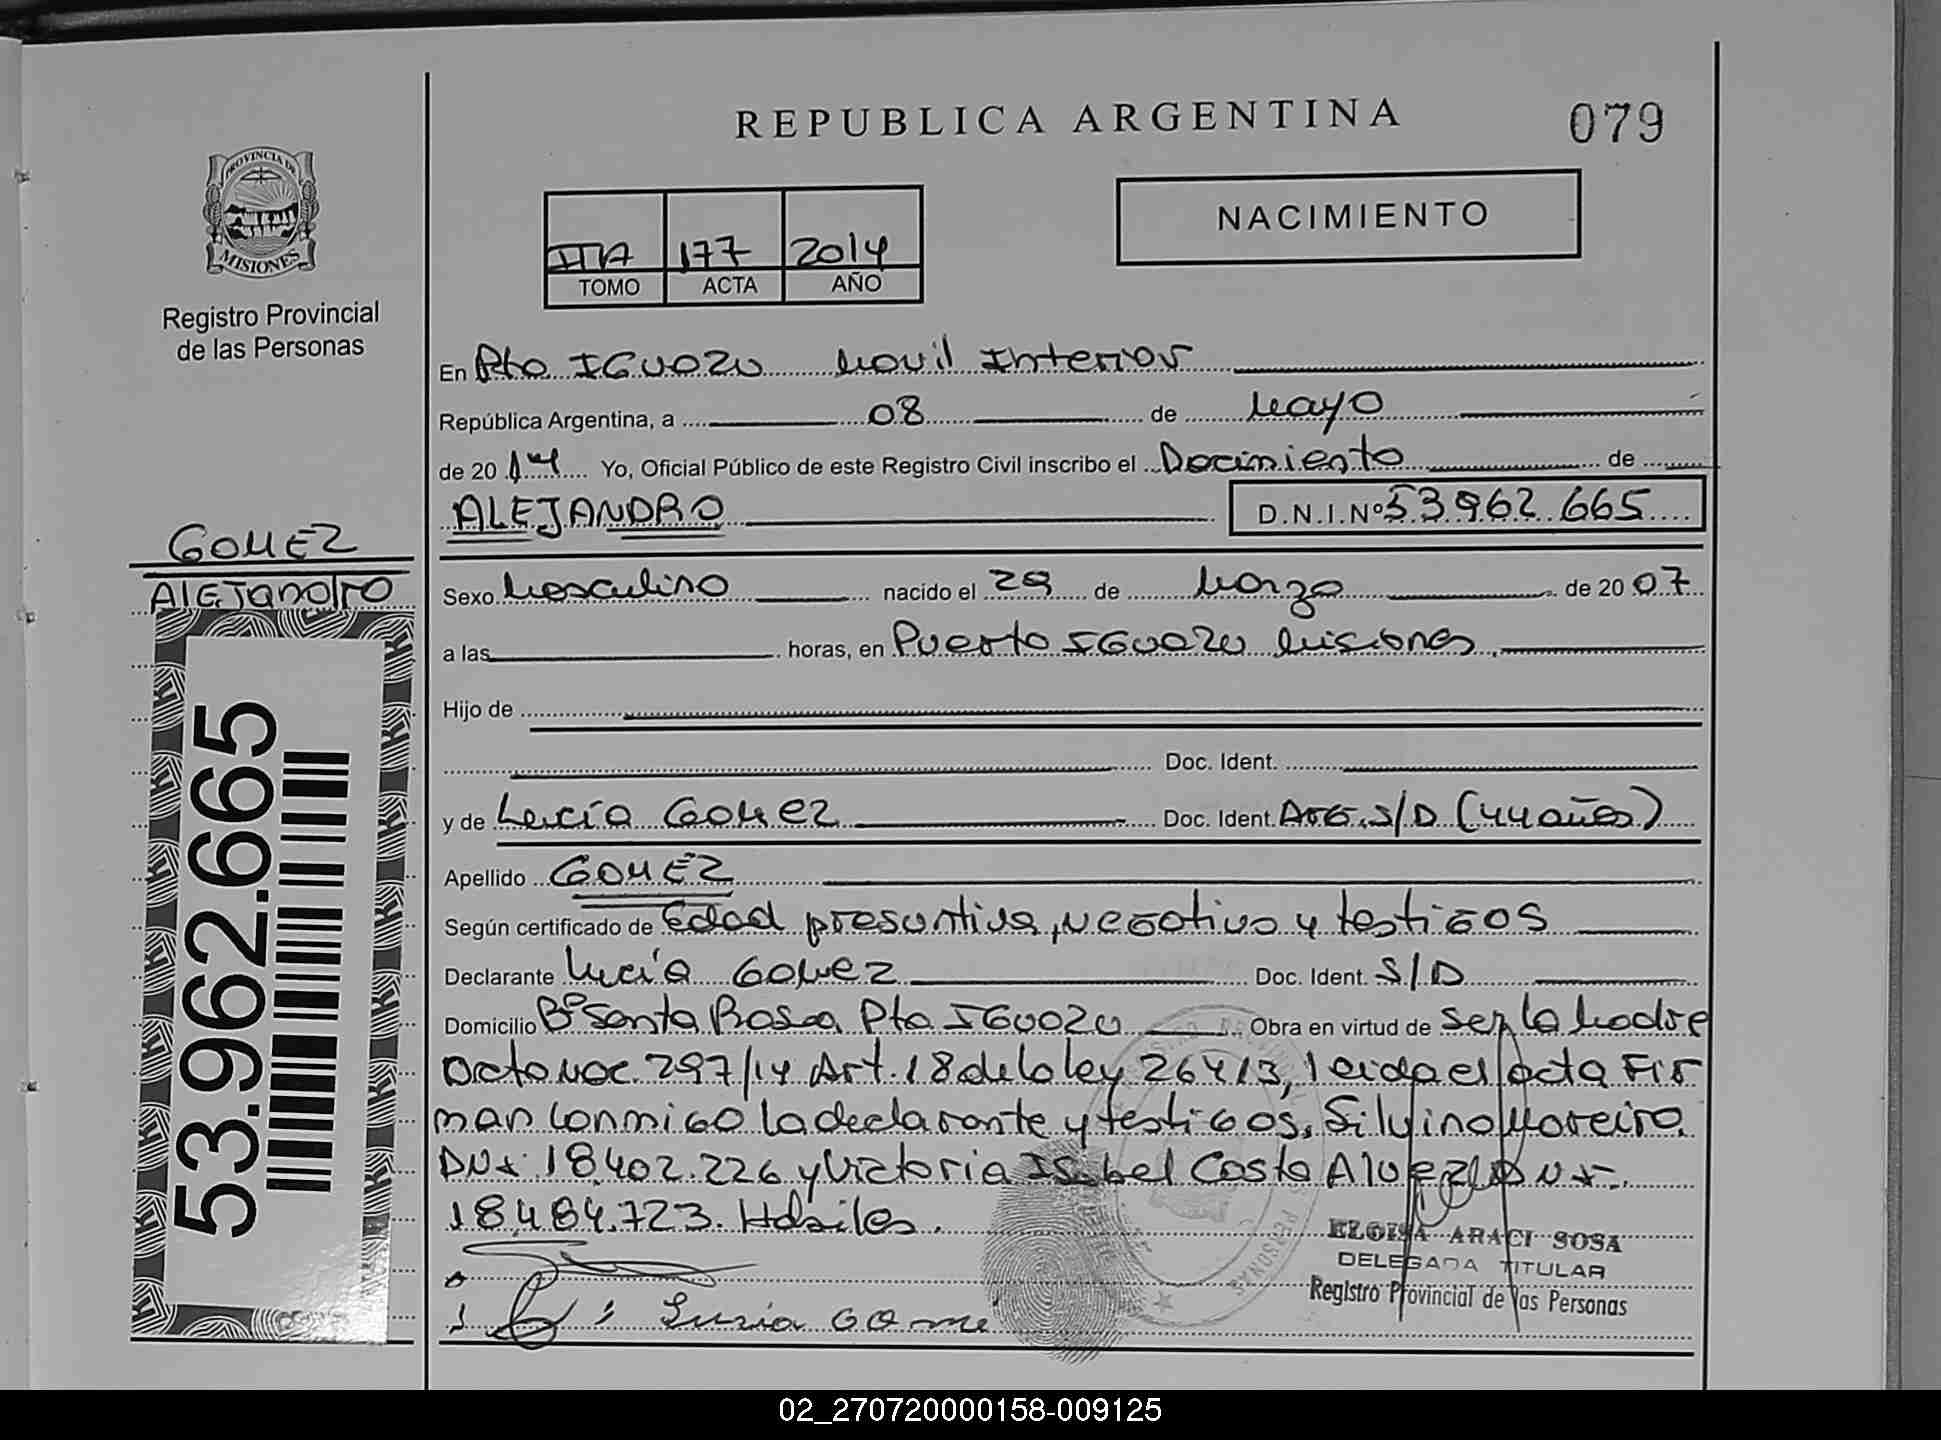 REPUBLICA ARGENTINA
079
PROVINCIA DE
MISIONES
Registro Provincial
de las Personas
NACIMIENTO
177 2014
TOMO ACTA AÑO
En Pto IGUAZU Movil Interior
República Argentina, a 08 de Mayo
de 20 14 Yo, Oficial Público de este Registro Civil inscribo el Nacimiento de
ALEJANDRO D.N.I.Nº 53962.665
GOMEZ
ALEJANDRO
53.962.665
Sexo Masculino nacido el 29 de Marzo de 20 07
a las horas, en Puerto IGUAZU Misiones
Hijo de
Doc. Ident.
y de Lucía Gomez Doc. Ident. ARG. S/D (44 años)
Apellido GOMEZ
Según certificado de Edad presuntiva, negativo y testigos
Declarante Lucía Gomez Doc. Ident. S/D
Domicilio Bº Santa Rosa Pto IGUAZU Obra en virtud de ser la Madre
297/14 Art. 18 de la ley 26413, leida el acta Fir
man conmigo la declarante y testigos, Silvino Moreira
DNI 18.402.226 y Victoria Isabel Costa Alvez DNI
18.484.723. Habiles.
ELOISA ARACI SOSA
DELEGADA TITULAR
Registro Provincial de las Personas
Gome
02_270720000158-009125